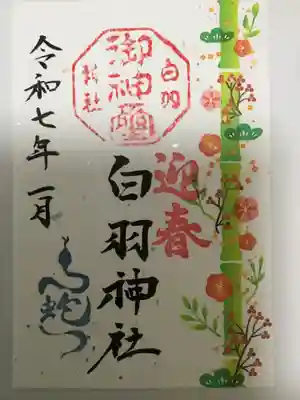 白羽
神社
御神璽
迎春
白羽神社
令和七年一月